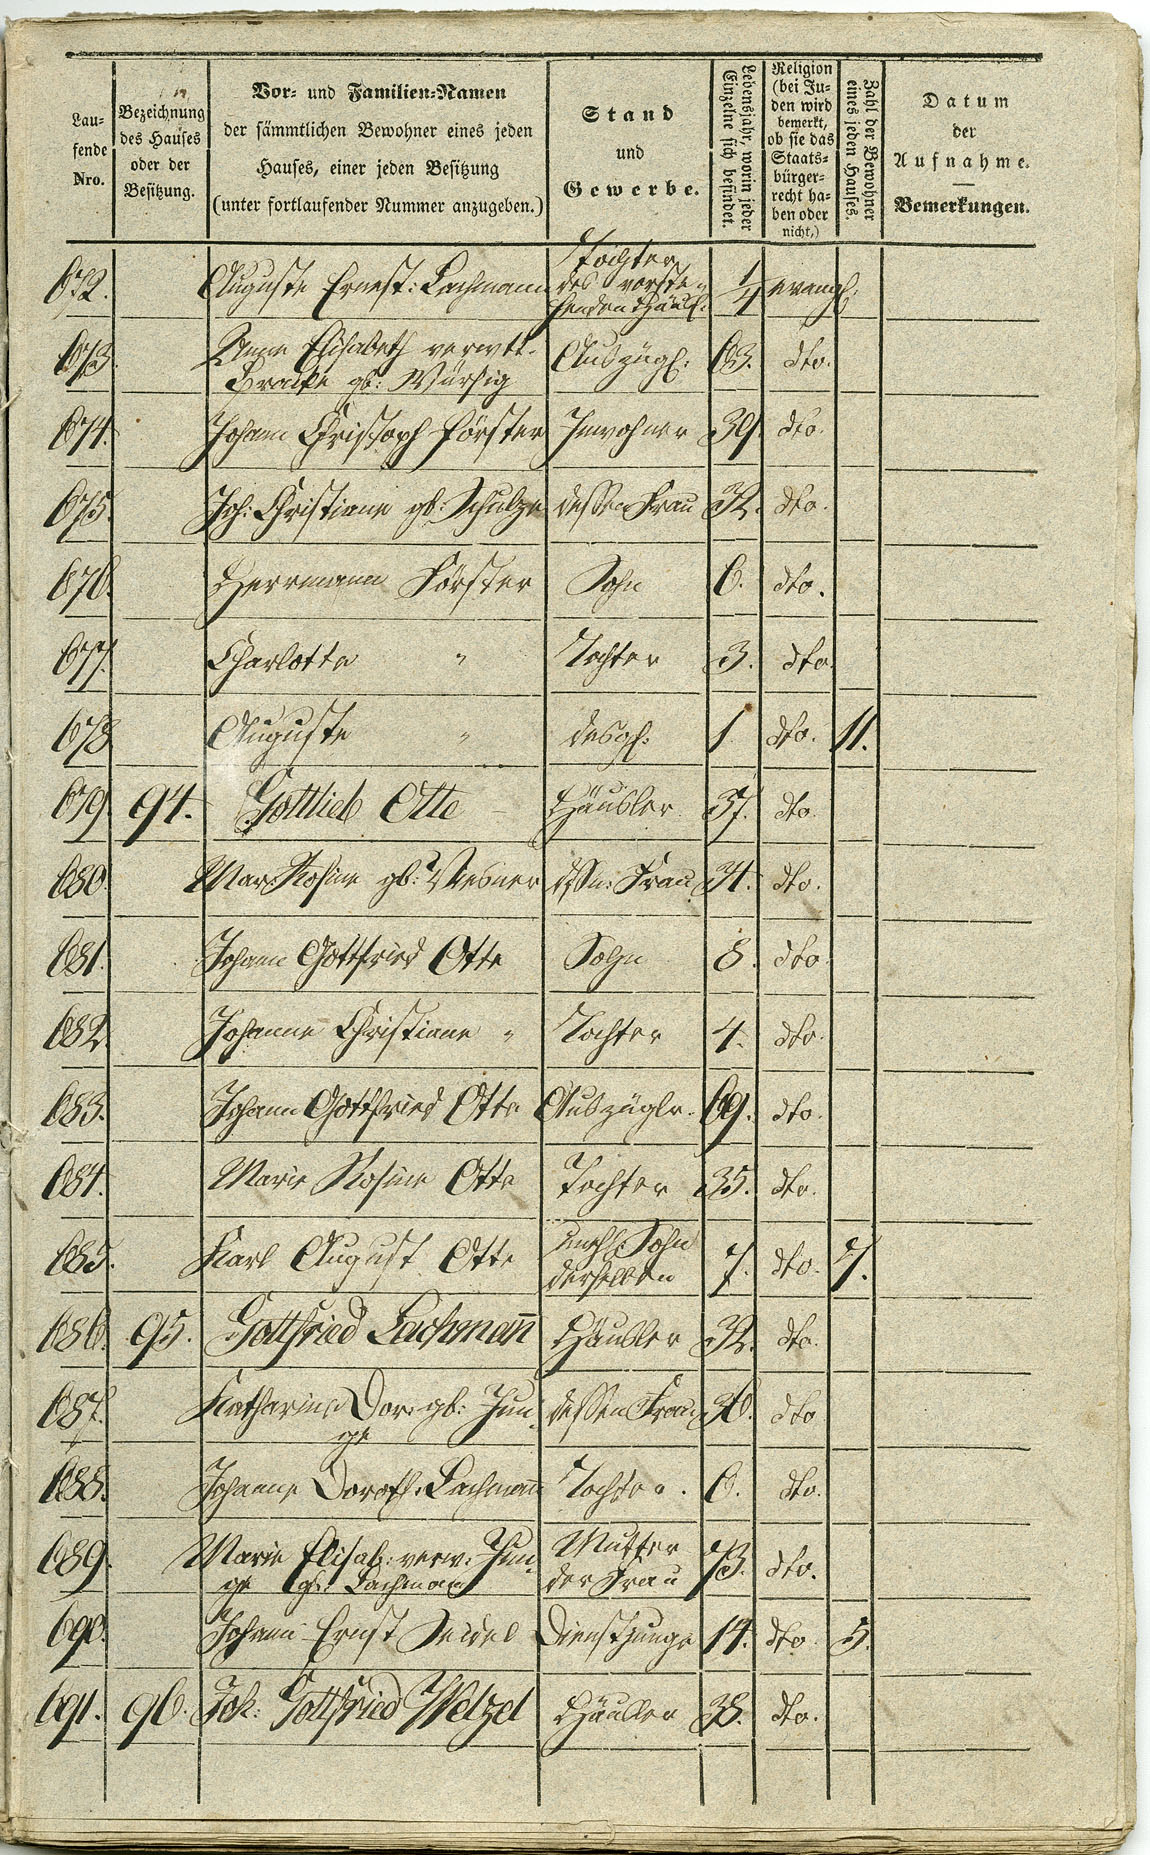 Lau-
fende
Nro.
Bezeichnung
des Hauses
oder der
Besitzung.
Vor- und Familien-Namen
der sämmtlichen Bewohner eines jeden
Hauses, einer jeden Besitzung
(unter fortlaufender Nummer anzugeben.)
Stand
und
Gewerbe.
Lebensjahr, worin jeder
Einzelne sich befindet.
Religion
(bei Ju-
den wird
bemerkt,
ob sie das
Staats-
bürger-
recht ha-
ben oder
nicht,)
Zahl der Bewohner
eines jeden Hauses.
Datum
der
Aufnahme.
Bemerkungen.
672. Auguste Ernest: Lachmann Tochter des vorste- henden Häusl: 1/4 evangl:
673. Anna Elisabeth verwtt. gb: Würsig Auszügl: 63. dto.
674. Johann Christoph Förster Inwohner 39. dto.
675. Joh: Christiane gb: Schulze dessen Frau 32. dto.
676. Herrmann Förster Sohn 6. dto.
677. Charlotte " Tochter 3. dto
678 Auguste " desgl: 1 dto. 11.
679 94. Gottlieb Otte Häusler 37. dto.
680. Mar: Rosine gb: dssn: Frau 34. dto.
681. Johann Gottfried Otte Sohn 8. dto
682. Johanne Christiane " Tochter 4. dto.
683. Johann Gottfried Otte Auszüglr. 69. dto.
684. Marie Rosine Otte Tochter 35. dto.
685. Karl August Otte unehl: Sohn derselben 7. dto. 7.
686. 95. Gottfried Lachmann Häusler 32. dto.
687. Katharine Dor: gb: Jun- ge dessen Frau 36. dto
688. Johanne Doroth: Lachmann Tochter. 6. dto.
689. Marie Elisab: verw: Jun- ge gb: Lachmann Mutter der Frau 73. dto.
690. Johann Ernst Seidel Dienstjunge 14. dto. 5.
691. 96. Joh: Gottfried Welzel Häusler 38. dto.